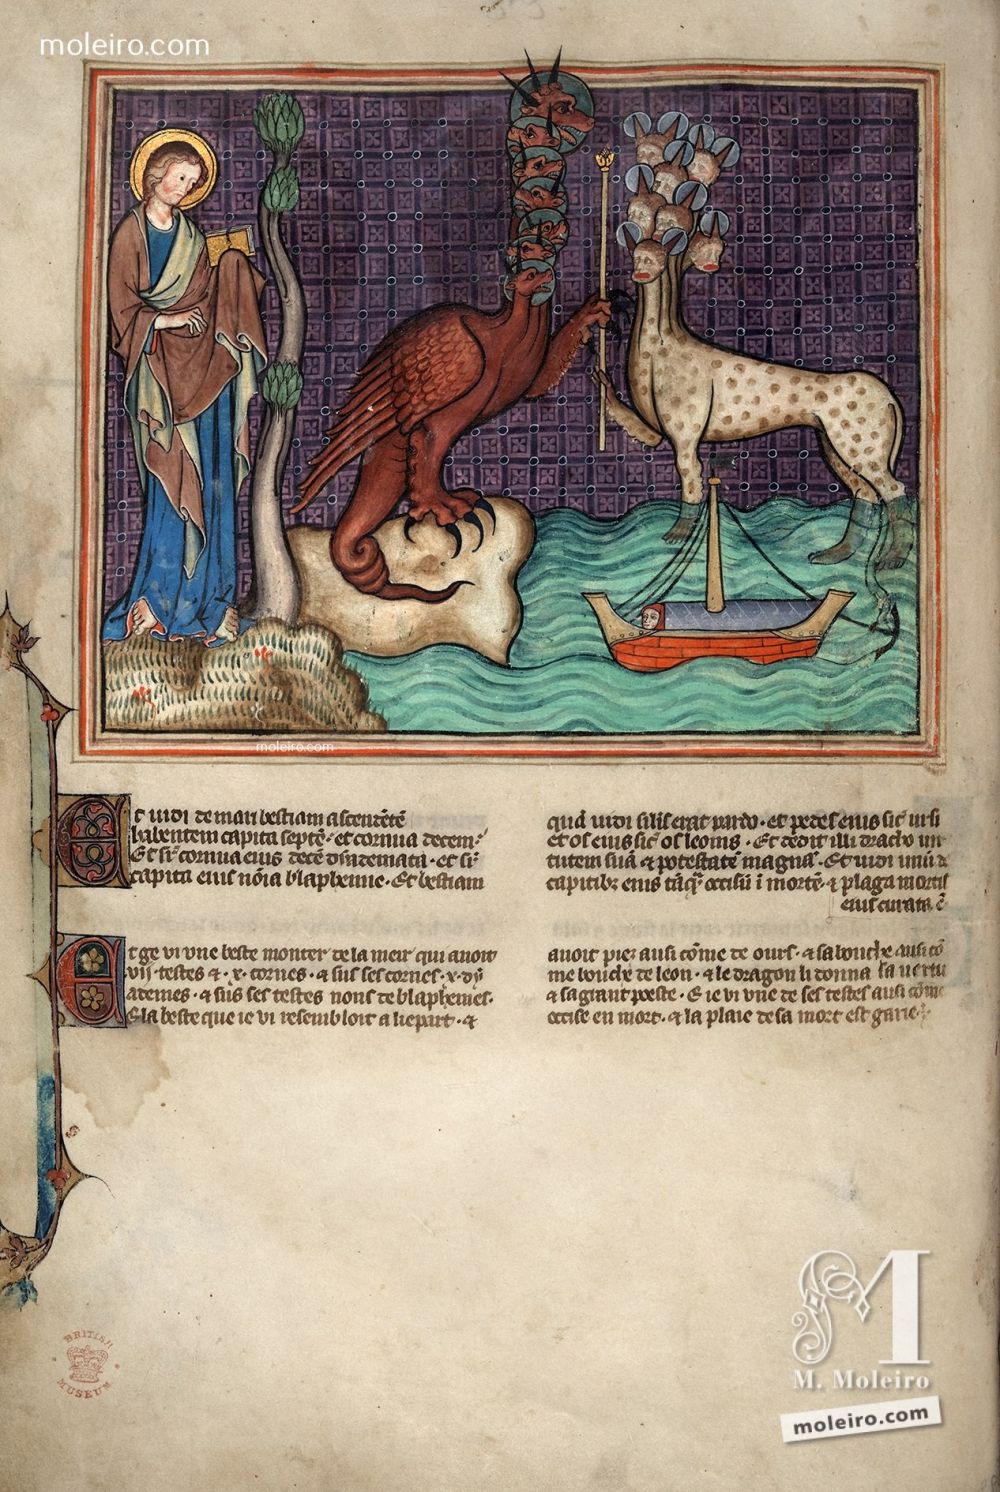 moleiro.com
moleiro.com
Et uidi de mari bestiam ascendētē
habentem capita septē · et cornua decem ·
Et sr̄ cornua eius decē dyademata · et sr̄
capita eius nōia blasphemie · Et bestiam
quā uidi silis erat pardo · et pedes eius sic̄ ursi
et os eius sic̄ os leonis · Et dedit illi draco uir
tutem suā & potestatē magnā · Et uidi unū d
capitibꝫ eius tāq̄ occisū ī mortē · & plaga mortis
eius curata ē
Et ge vi vne beste monter de la meir qui auoit
vii · testes & · x · cornes · & sus ses cornes · x · dy
ademes · & sus ses testes nons de blasphemes ·
E la beste que ie vi resembloit a liepart · &
auoit piez ausi cōme de ours · & sa bouche ausi cō
me bouche de leon · & le dragon li donna sa uertu
& sa grant poeste · E ie vi vne de ses testes ausi cōme
occise en mort · & la plaie de sa mort est garie ·
BRITISH
MUSEUM
M
M. Moleiro
moleiro.com